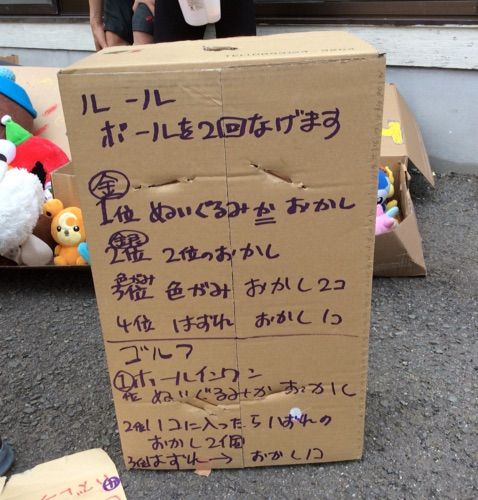 ルール
ボールを2回なげます
金
1位 ぬいぐるみか おかし
銀
2位 2位のおかし
色がみ
3位 色がみ おかし2コ
4位 はずれ おかし1コ
ゴルフ
①ホールインワン
位 ぬいぐるみかおかし
2位 1コに入ったらはずれの
おかし2個
3位はずれ→ おかし1コ